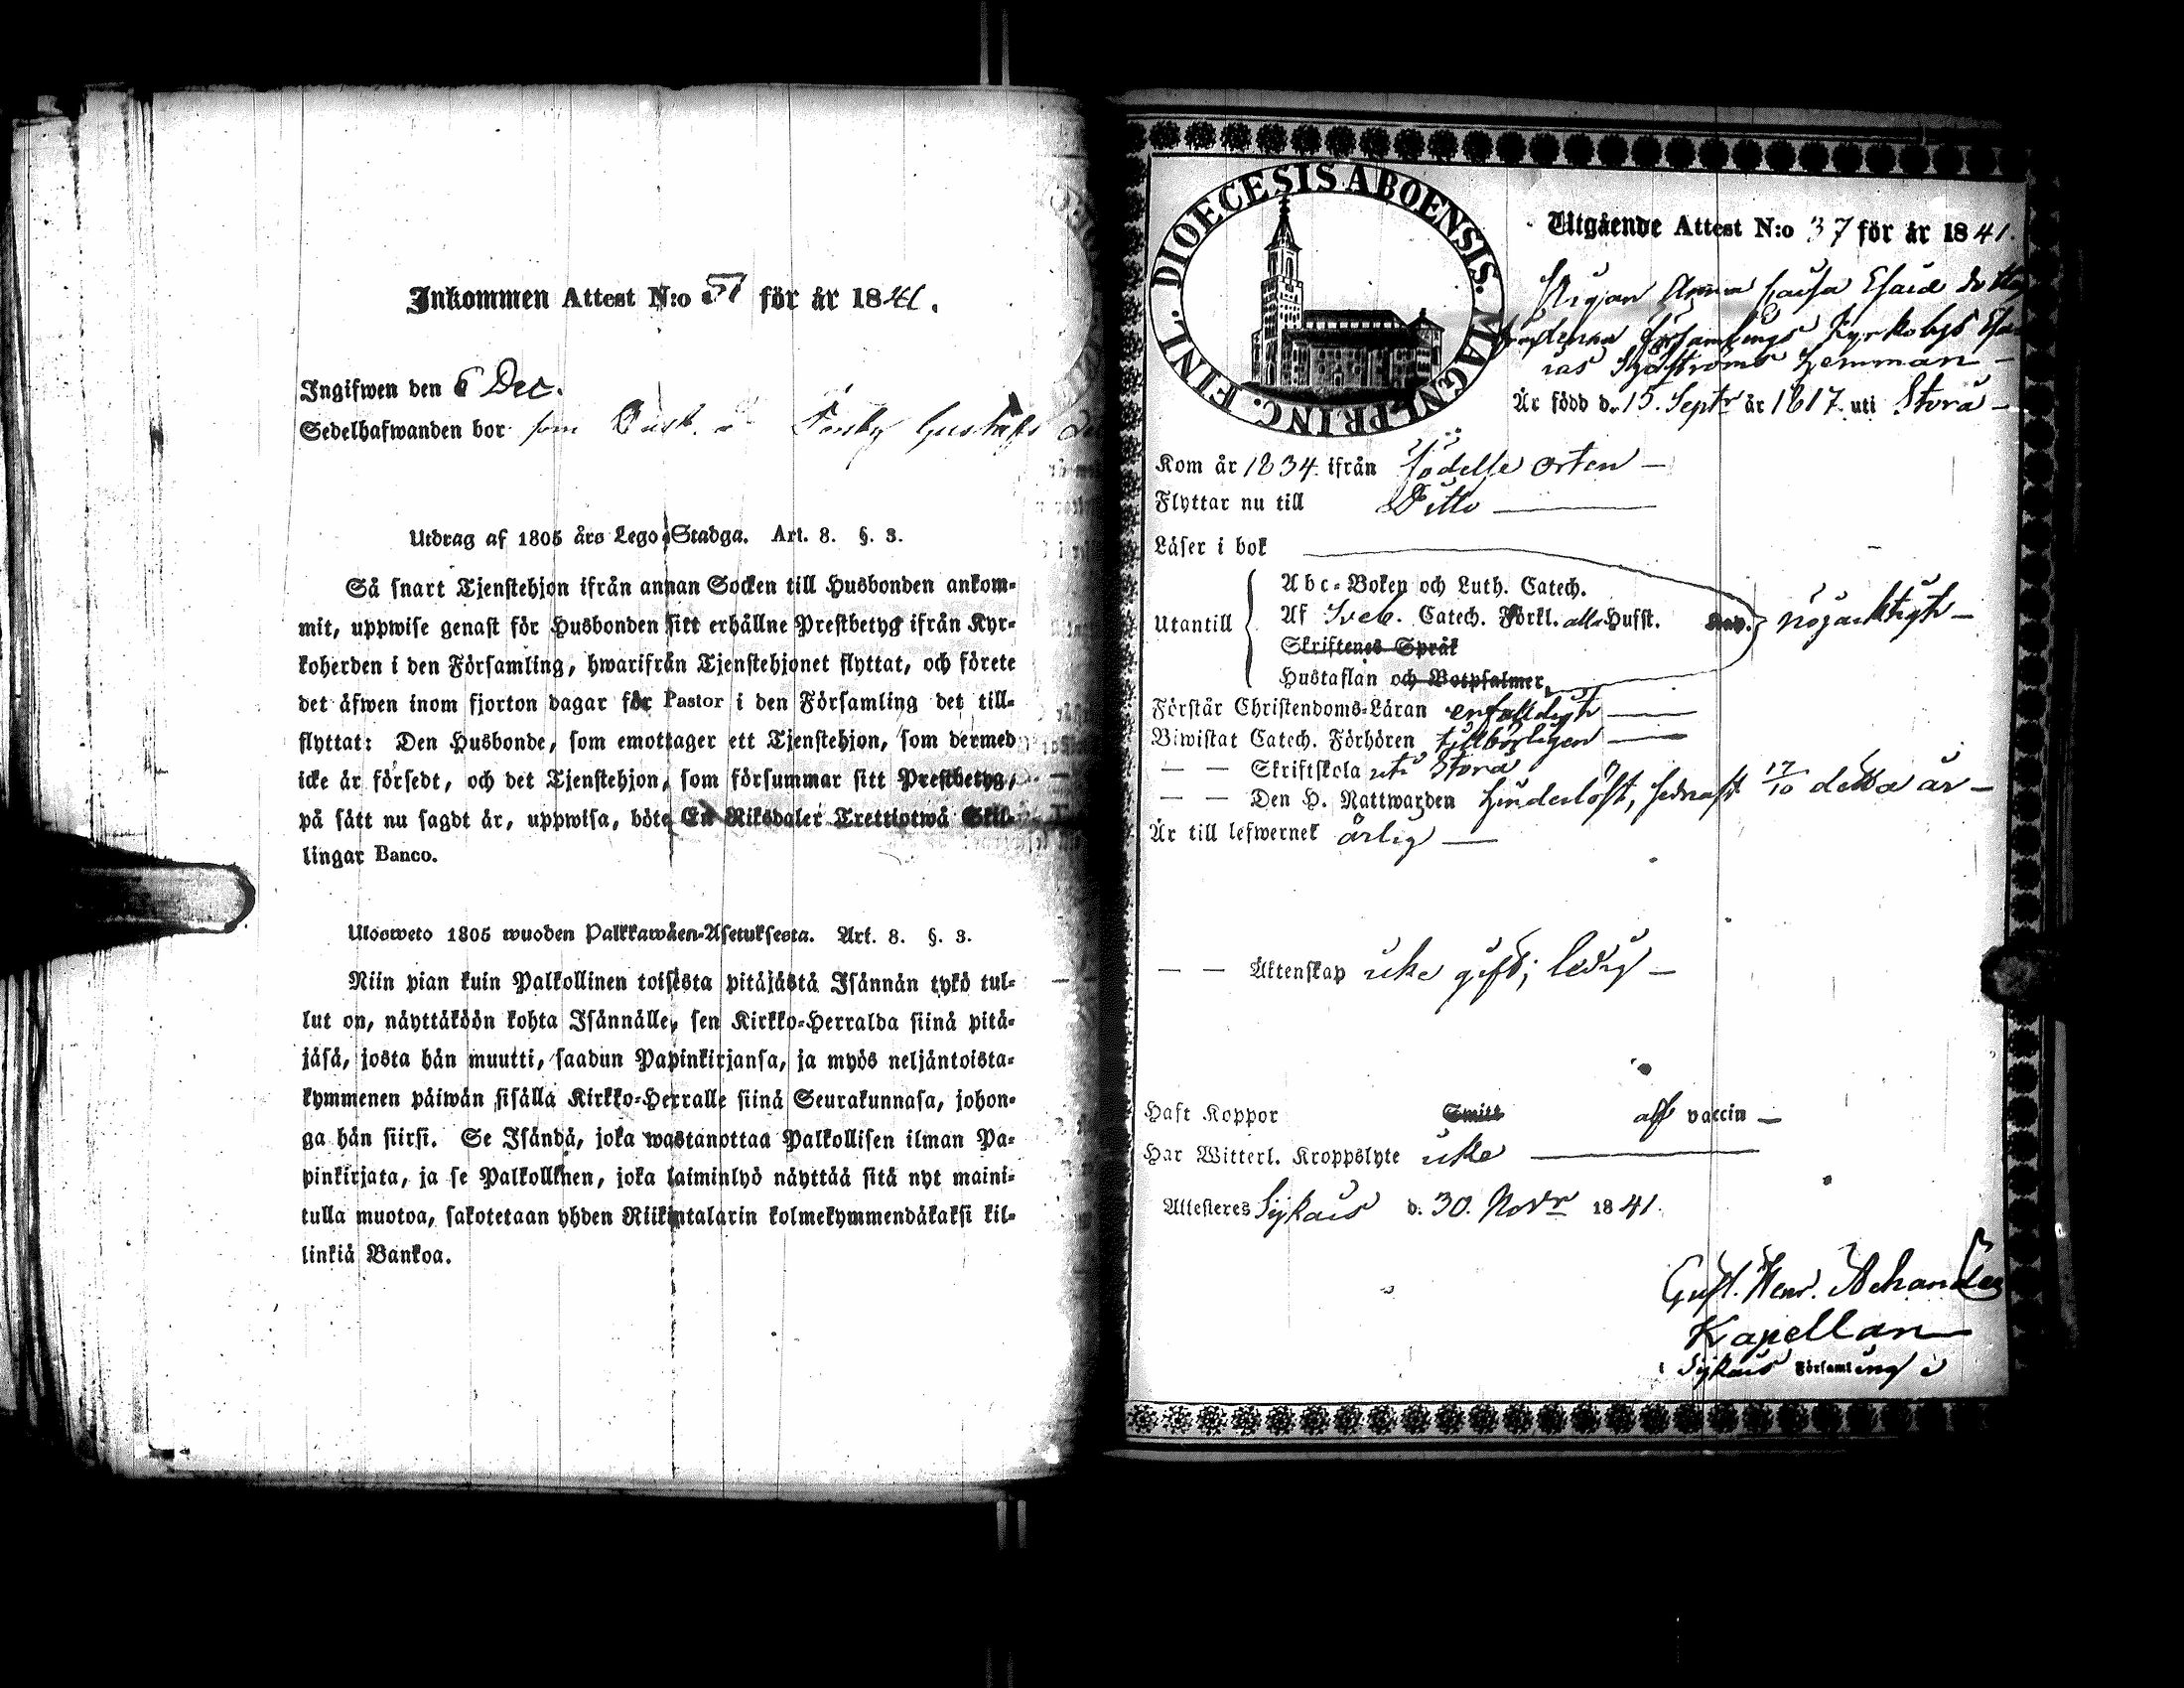 Inkommen Attest N:o 57 för år 1841.
Ingifwen den 6 Dec.
Sedelhafwanden bor som
Utdrag af 1805 års Lego-Stadga. Art. 8. §. 3.
Så snart Tjenstehjon ifrån annan Socken till Husbonden ankom-
mit, uppwise genast för Husbonden sitt erhållne Prestbetyg ifrån Kyr-
koherden i den Församling, hwarifrån Tjenstehjonet flyttat, och förete
det äfwen inom fjorton dagar för Pastor i den Församling det till-
flyttat: Den Husbonde, som emottager ett Tjenstehjon, som dermed
icke är försedt, och det Tjenstehjon, som försummar sitt Prestbetyg,
på sätt nu sagdt är, uppwisa, böte En Riksdaler Trettiotwå Skil-
lingar Banco.
Ulosweto 1805 wuoden Palkkawäen-Asetuksesta. Art. 8. §. 3.
Niin pian kuin Palkollinen toisesta pitäjästä Isännän tykö tul-
lut on, näyttäköön kohta Isännälle, sen Kirkko-Herralda siinä pitä-
jäsä, josta hän muutti, saadun Papinkirjansa, ja myös neljäntoista-
kymmenen päiwän sisällä Kirkko-Herralle siinä Seurakunnasa, johon-
ga hän siirsi. Se Isändä, joka wastanottaa Palkollisen ilman Pa-
pinkirjata, ja se Palkollinen, joka laiminlyö näyttää sitä nyt maini-
tulla muotoa, sakotetaan yhden Riikintalarin kolmekymmendäkaksi kil-
linkiä Bankoa.
DIOECESIS ABOENSIS. MAGNI PRINC. FINL.
Utgående Attest N:o 37 för år 1841.
Pigan Anna Caisa Esaie dotter
från denna församlings Kyrkoby Esa-
ias Sjöströms hemman —
Är född d. 15. Septr år 1817. uti Storå —
Kom år 1834. ifrån födelse orten —
Flyttar nu till Ditto —
Läser i bok
Utantill
Abc-Boken och Luth. Catech.
Af Sveb. Catech. Förkl. alla Hufst. Kap. nöjaktigt —
Skriftenes Språk
Hustaflan och Botpsalmer,
Förstår Christendoms-Läran enfalldigt —
Biwistat Catech. Förhören tillbörligen —
— — Skriftskola uti Storå
— — Den H. Nattwarden hinderlöst, sednast 17/10 detta år —
Är till lefwernet ärlig —
— — Äktenskap icke gift; ledig —
Haft Koppor Smitt af vaccin —
Har Witterl. Kroppslyte icke —
Attesteras d. 30. Novr 1841.
Gust. Henr.
Kapellan
i Församling